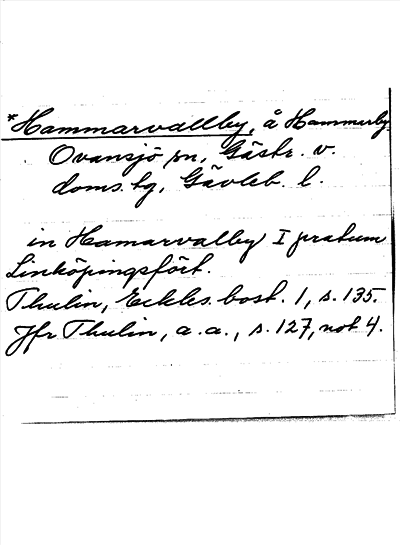 *Hammarvallby, å Hammarby
Ovansjö sn, Gästr. v.
doms. tg, Gävleb. l.
in Hamarvalby I pratum
Linköpingsfört.
Thulin, Eckles. bost. 1, s. 135.
Jfr Thulin, a. a., s. 127, not 4.